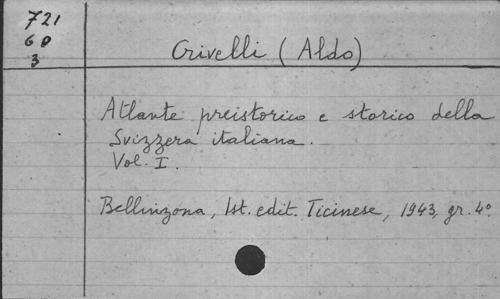 721
6 D
3
Crivelli (Aldo)
Atlante preistorico e storico della
Svizzera italiana.
Vol. I.
Bellinzona, Ist. edit. Ticinese, 1943, gr. 4°.